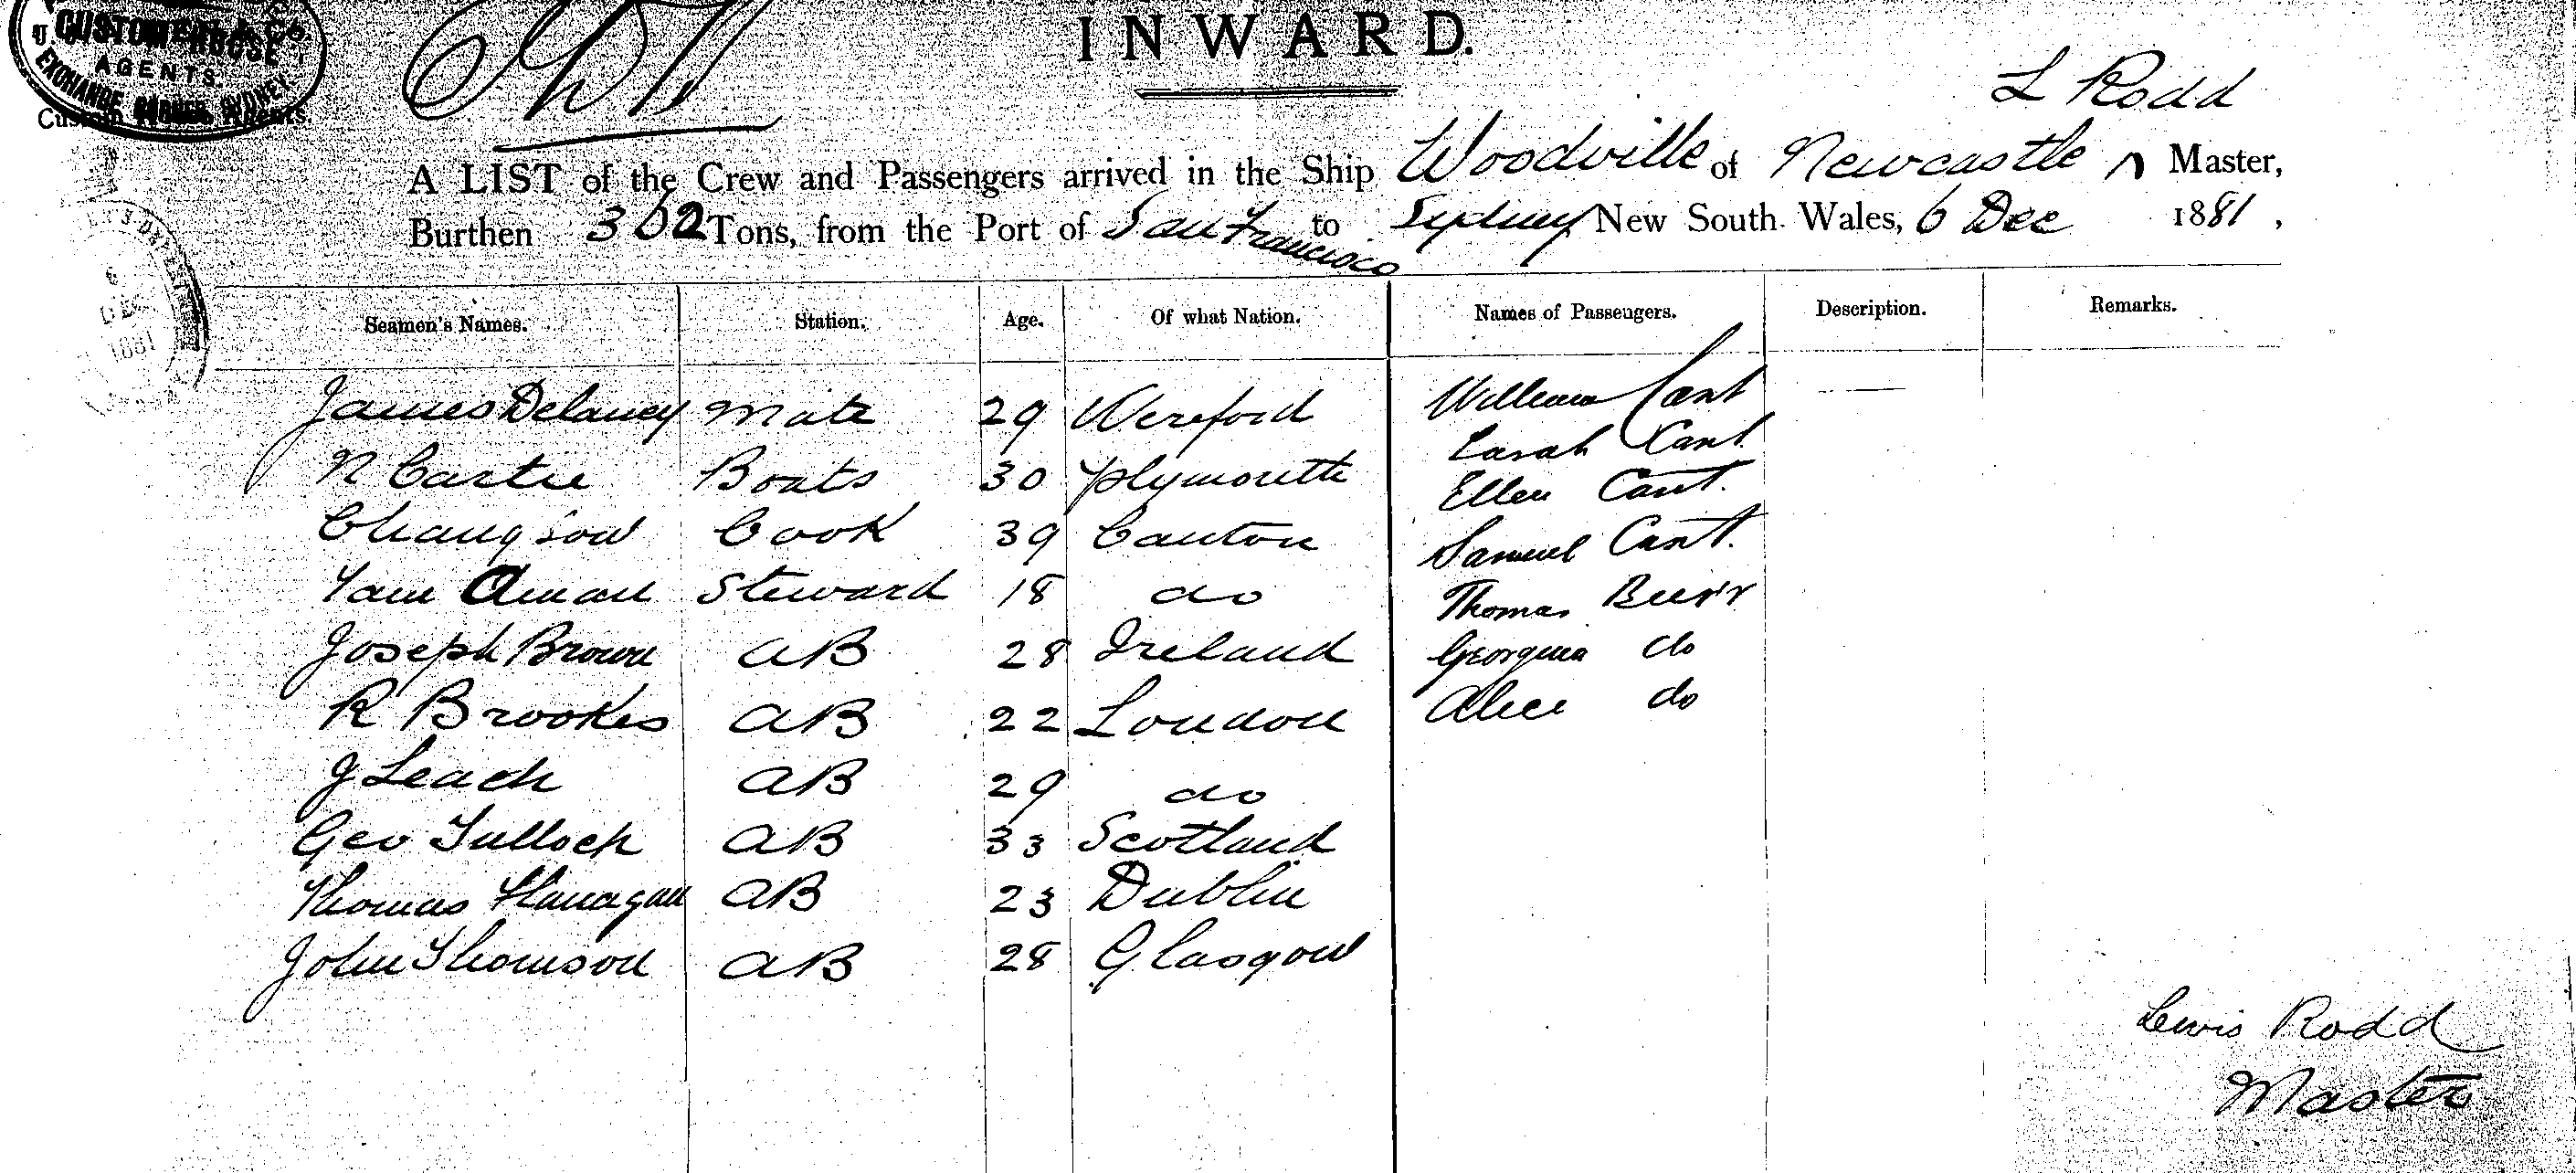 CUSTOM HOUSE
AGENTS.
EXCHANGE CORNER, SYDNEY.
Custom House Agents.
INWARD.
L Rodd
A LIST of the Crew and Passengers arrived in the Ship Woodville of Newcastle Master,
Burthen 362 Tons, from the Port of San Francisco to Sydney New South Wales, 6 Dec 1881,
6
DE
1881
Seamen's Names. Station. Age. Of what Nation. Names of Passengers. Description. Remarks.
James Delaney Mate 29 Wexford William Cant
Sarah Cant.
N Carter Boats 30 Plymouth Ellen Cant.
Cook 39 Canton Samuel Cant.
Steward 18 do Thomas Burr
Joseph Brown AB 28 Ireland Georgina do
R Brookes AB 22 London Alice do
J Leach AB 29 do
Geo Tulloch AB 33 Scotland
Thomas Flanagan AB 23 Dublin
John Thomson AB 28 Glasgow
Lewis Rodd
Master